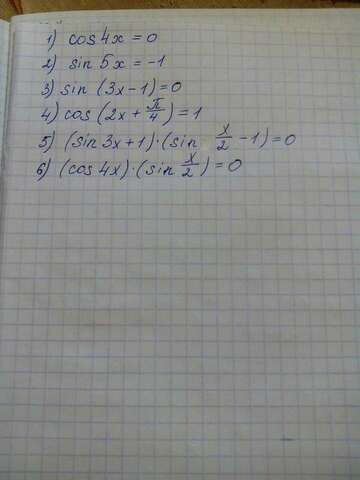 1) cos 4x = 0
2) sin 5x = -1
3) sin (3x - 1) = 0
4) cos (2x + π/4) = 1
5) (sin 3x + 1) · (sin x/2 - 1) = 0
6) (cos 4x) · (sin x/2) = 0